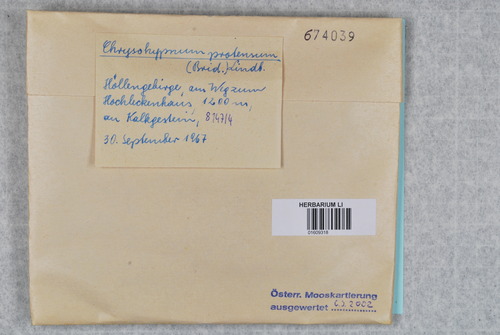 674039
Chrysohypnum protensum
(Brid.) Lindb.
Höllengebirge, am Weg zum
Hochleckenhaus, 1200 m,
an Kalkgestein, 8147/4
30. September 1967
HERBARIUM LI
01609318
Österr. Mooskartierung
ausgewertet 2002